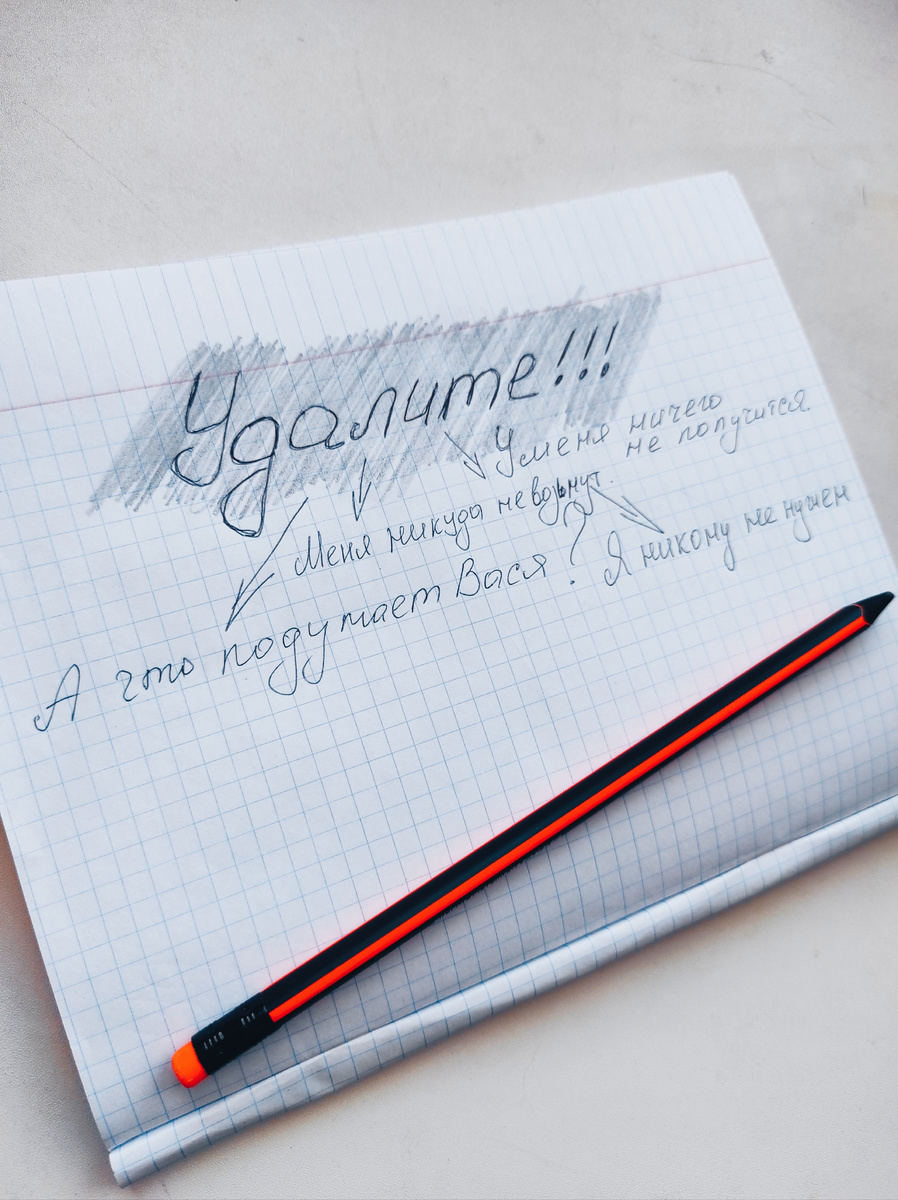 Удалите!!!
У меня ничего
не получится.
Меня никуда не возьмут.
Я никому не нужен
А что подумает Вася?